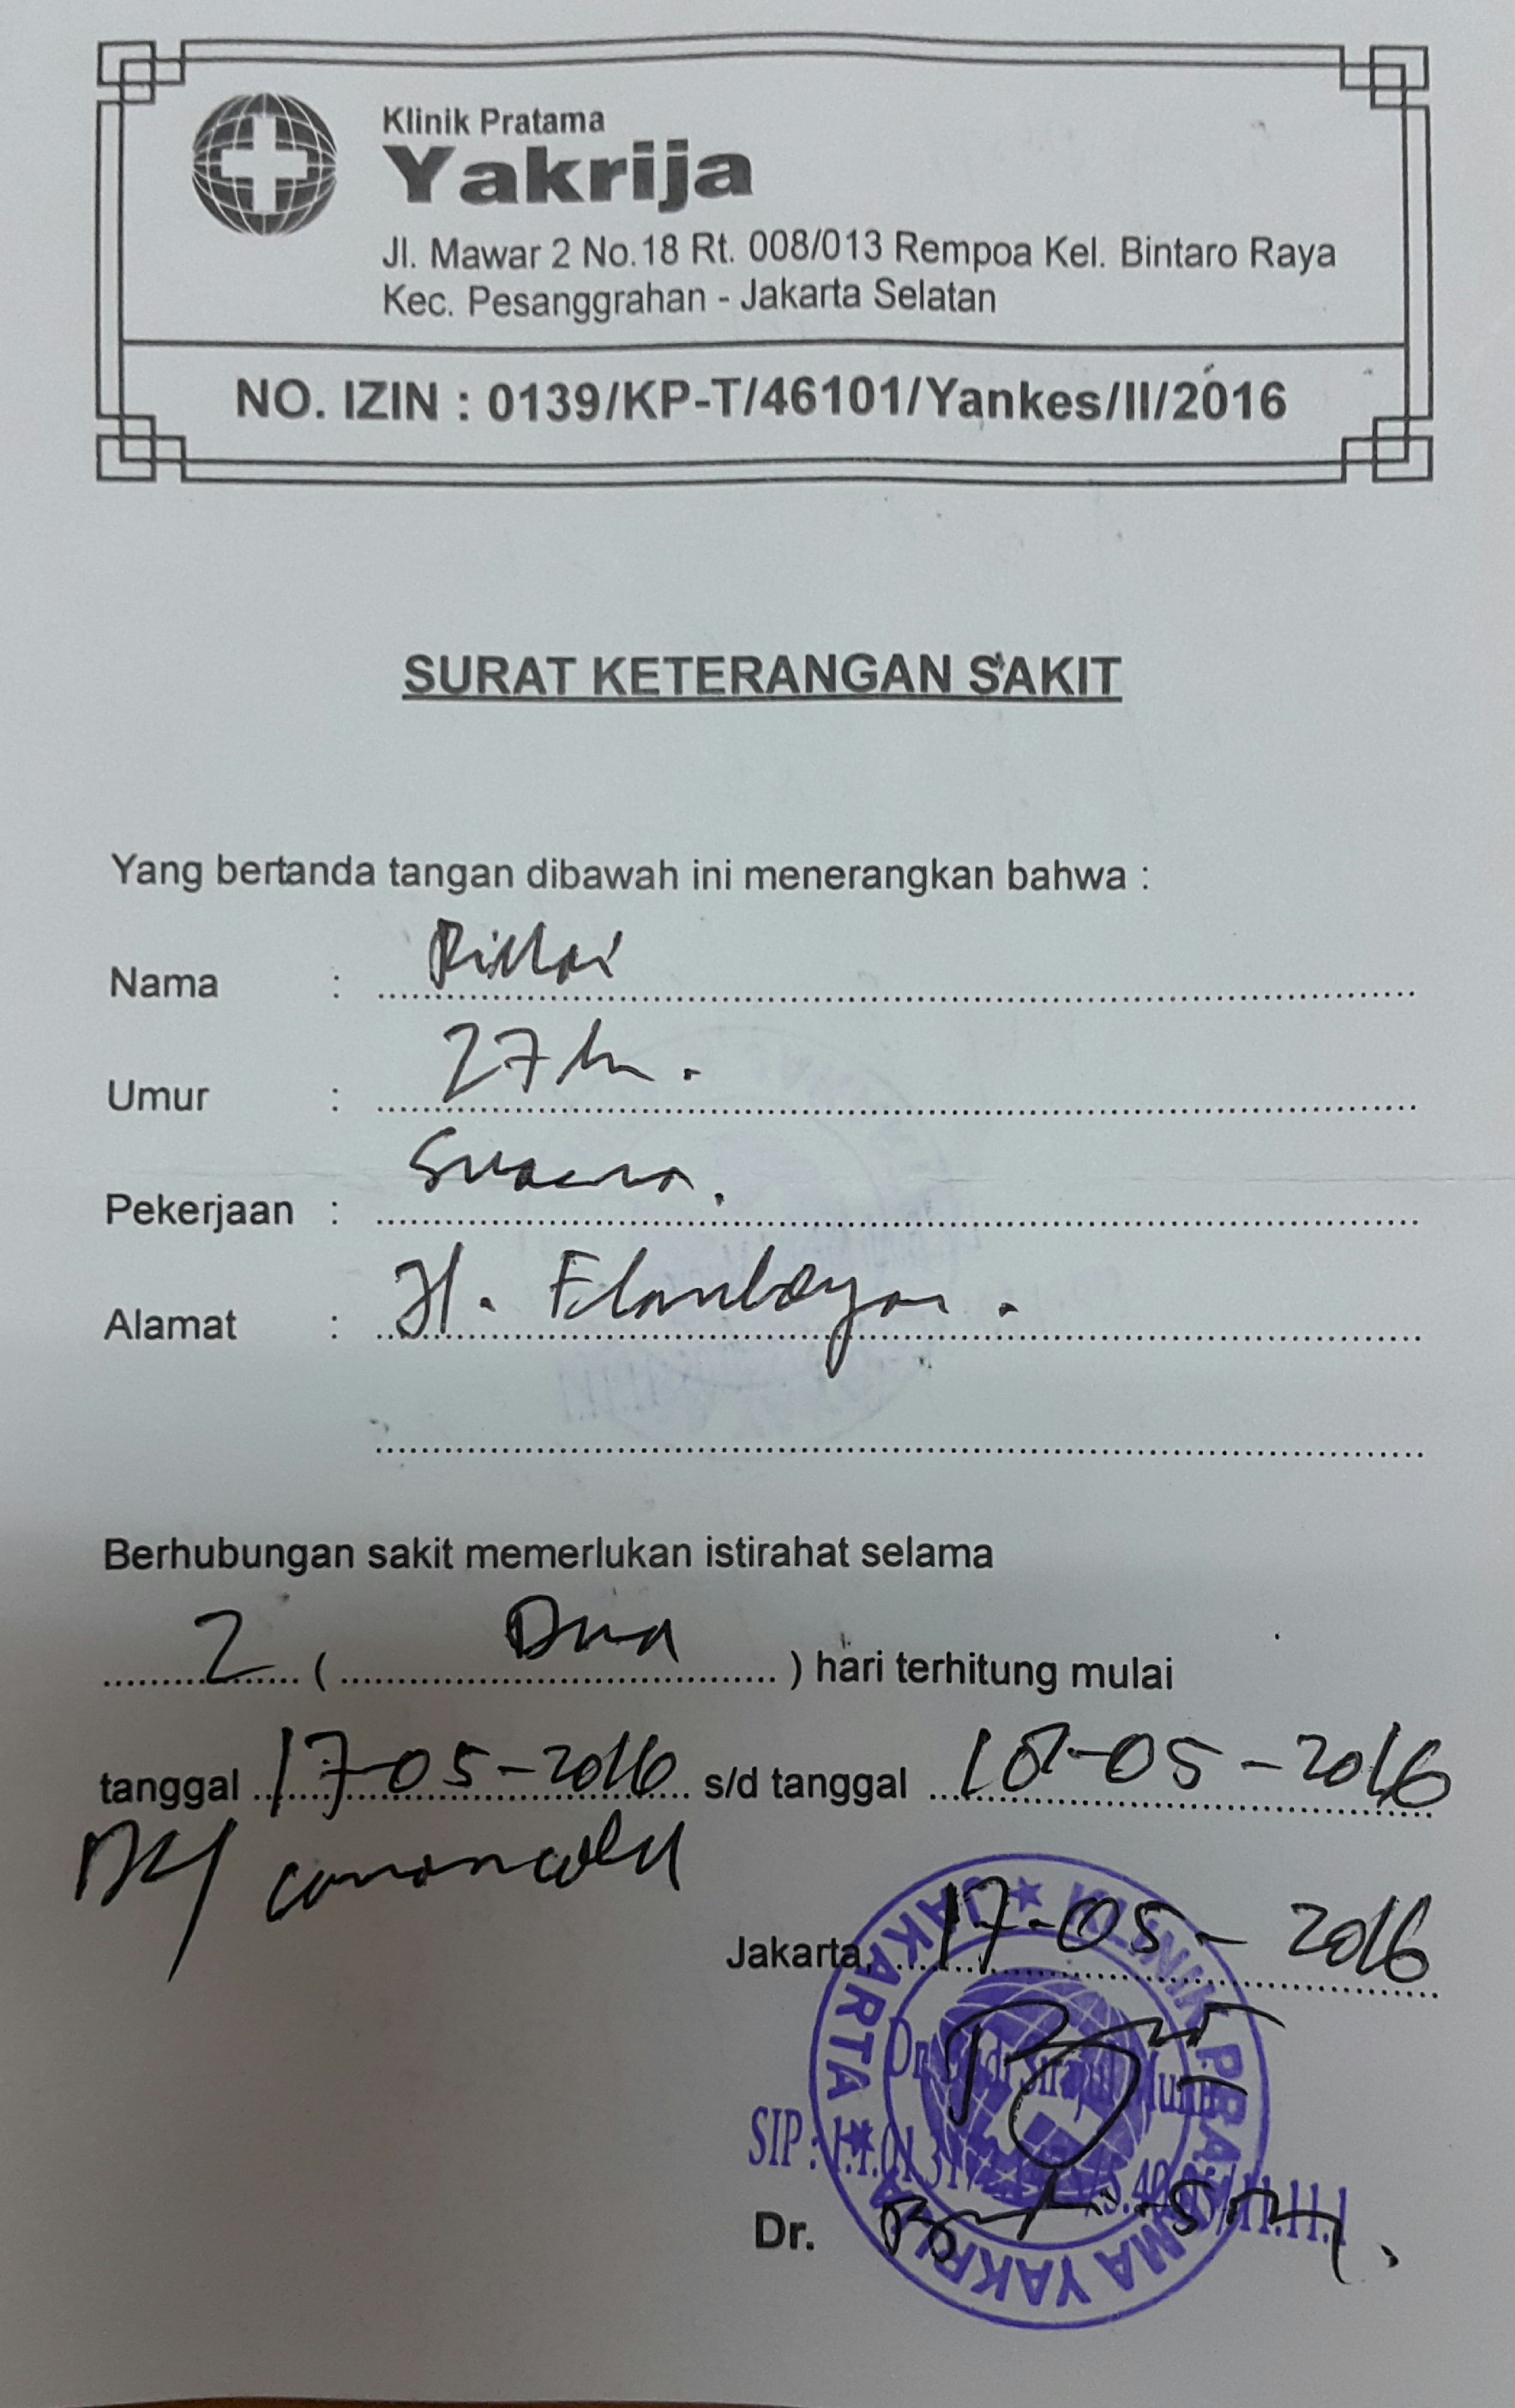 Klinik Pratama
Yakrija
Jl. Mawar 2 No.18 Rt. 008/013 Rempoa Kel. Bintaro Raya
Kec. Pesanggrahan - Jakarta Selatan
NO. IZIN : 0139/KP-T/46101/Yankes/II/2016
SURAT KETERANGAN SAKIT
Yang bertanda tangan dibawah ini menerangkan bahwa :
Nama :
Umur : 27 th.
Pekerjaan :
Alamat : Jl. Flamboyan.
Berhubungan sakit memerlukan istirahat selama
2 ( Dua ) hari terhitung mulai
tanggal 17-05-2016 s/d tanggal 18-05-2016
Jakarta, 17-05-2016
KLINIK PRATAMA YAKRIJA ★ JAKARTA ★
SIP :
Dr.